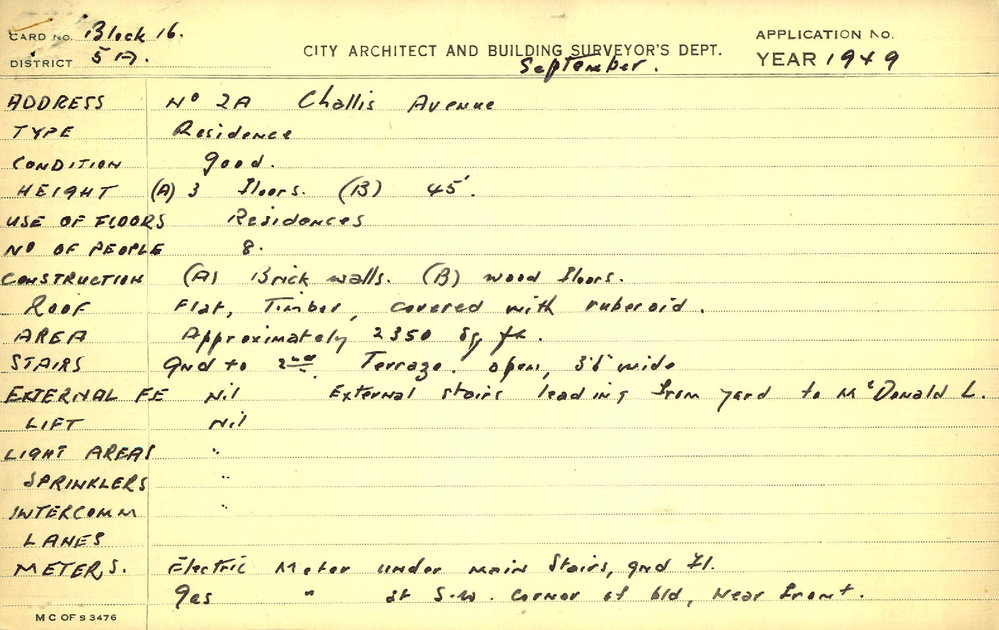 CARD No. Block 16.
DISTRICT 5A.
CITY ARCHITECT AND BUILDING SURVEYOR'S DEPT.
September.
APPLICATION No.
YEAR 1949
ADDRESS No 2A Challis Avenue
TYPE Residence
CONDITION good.
HEIGHT (A) 3 floors. (B) 45'.
USE OF FLOORS Residences
No OF PEOPLE 8.
CONSTRUCTION (A) Brick walls. (B) wood floors.
ROOF Flat, Timber, covered with ruberoid.
AREA Approximately 2350 sq ft.
STAIRS Gnd to 2nd. Terrazo. open, 3'6" wide
EXTERNAL FE Nil External stairs leading from yard to McDonald L.
LIFT Nil
LIGHT AREAS "
SPRINKLERS "
INTERCOMM "
LANES
METERS. Electric Meter under main Stairs, gnd fl.
Gas " at S.W. Corner of bld, Near front.
M C OF S 3476